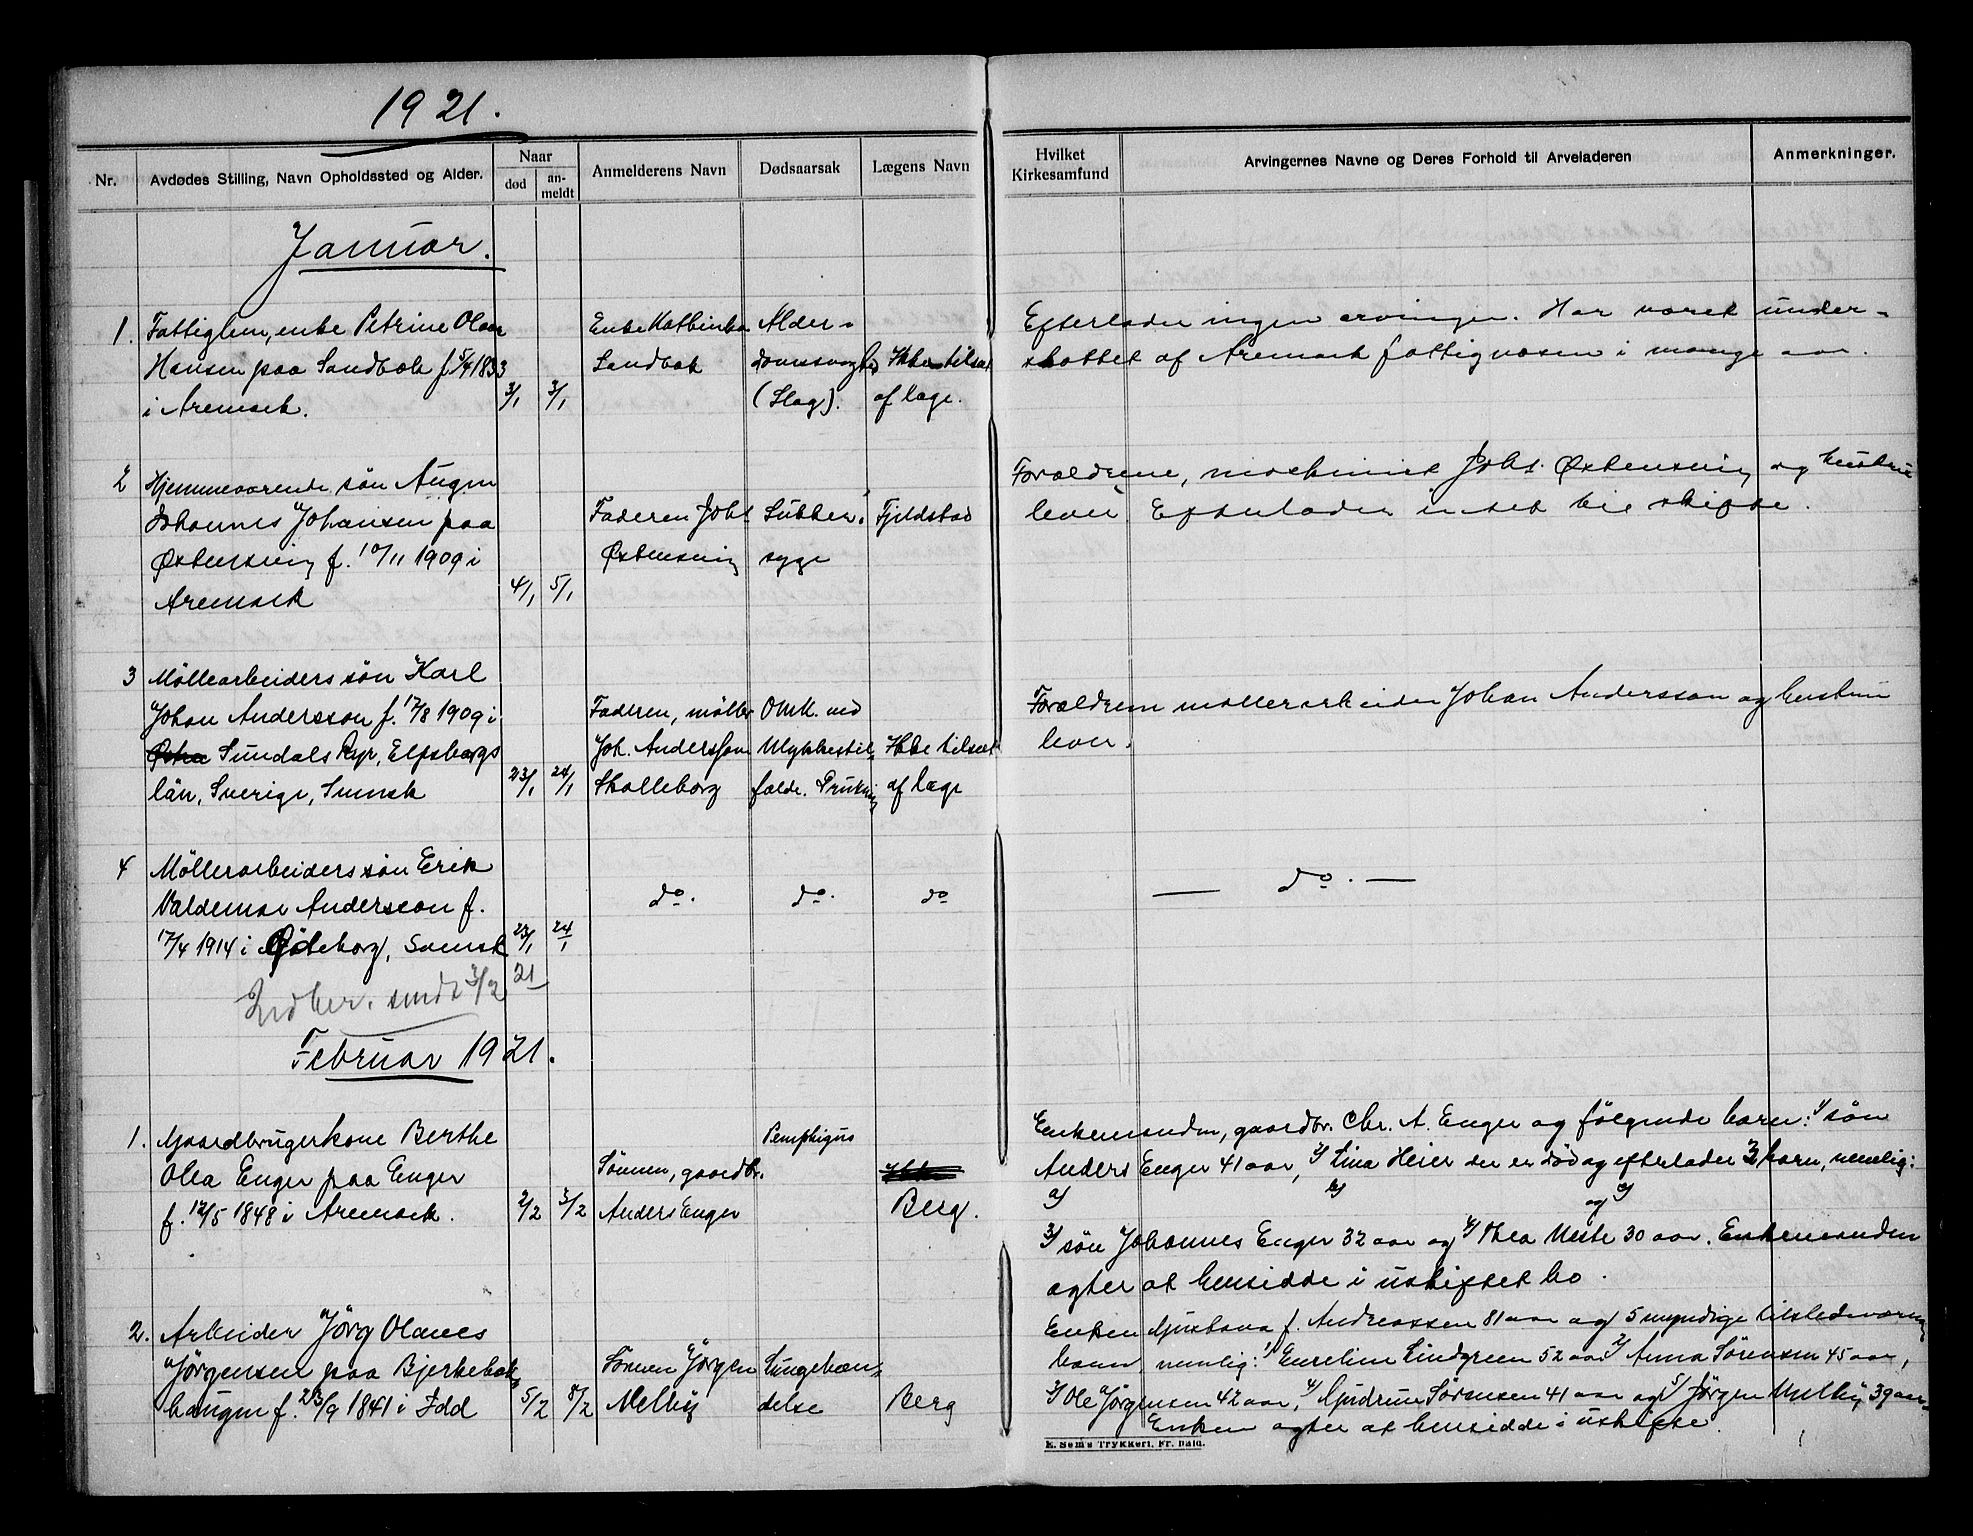 1921.
Nr. Avdødes Stilling, Navn Opholdssted og Alder. Naar død an-meldt Anmelderens Navn Dødsaarsak Lægens Navn Hvilket Kirkesamfund Arvingernes Navne og Deres Forhold til Arveladeren Anmerkninger.
Januar.
1. Fattiglem, enke Petrine Olava
Hansen paa Sandbæk f. 5/4 1833
i Aremark. 3/1 3/1
Enke Kathinka
Sandbæk
Alder-
domssvaghed
(Slag).
Ikke tilset
af læge.
Efterlader ingen arvinger. Har været under-
støttet af Aremark fattigvæsen i mange aar.
2 Hjemmeværende søn Augen
Johannes Johansen paa
Østensvig f. 10/11 1909 i
Aremark 4/1 5/1
Faderen Johs.
Østensvig
Sukker-
syge
Fjeldstad
Forældrene, maskinist Johs. Østensvig og hustru
lever. Efterlader intet til skifte.
3 Møllearbeiders søn Karl
Johan Andersson f. 17/8 1909 i
Sundals Ryr, Elfsborgs
län, Sverige, Svensk 23/1 24/1
Faderen, møller
Joh. Andersson
Skolleborg
Omk. ved
Ulykkestil-
fælde. Drukning
Ikke tilset
af læge
Forældrene møllerarbeider Johan Andersson og hustru
lever.
4 Møllerarbeiders søn Erik
Valdemar Andersson f.
17/4 1914 i Göteborg, Svensk 23/1 24/1
do. do. do
— do. —
Indber. sendt 3/2 21
Februar 1921.
1. Gaardbrugerkone Berthe
Olea Enger paa Enger
f. 12/5 1848 i Aremark. 2/2 3/2
Sønnen, gaardbr.
Anders Enger
Pemphigus
Berg.
Enkemanden, gaardbr. Chr. A. Enger og følgende barn: 1/ søn
Anders Enger 41 aar, 2/ Lina Heier der er død og efterlader 3 barn, nemlig:
a/ b/ og c/
3/ søn Johannes Enger 32 aar og 4/ Thea Neste 30 aar. Enkemanden
agter at hensidde i uskiftet bo.
2. Arbeider Jörg Olaves
Jørgensen paa Bjerkebæk-
haugen f. 23/9 1841 i Idd 5/2 8/2
Sønnen Jørgen
Melby
Lungebæn-
delse
Berg
Enken Gustava f. Andreassen 81 aar og 5 myndige tilstedeværende
barn nemlig: 1/ Eveline Lindgreen 52 aar 2/ Anna Sørensen 45 aar,
3/ Ole Jørgensen 42 aar, 4/ Gudrun Sørensen 41 aar og 5/ Jørgen Melby 39 aar.
Enken agter at hensidde i uskifte.
E. Sem's Trykkeri, Fr. Hald.